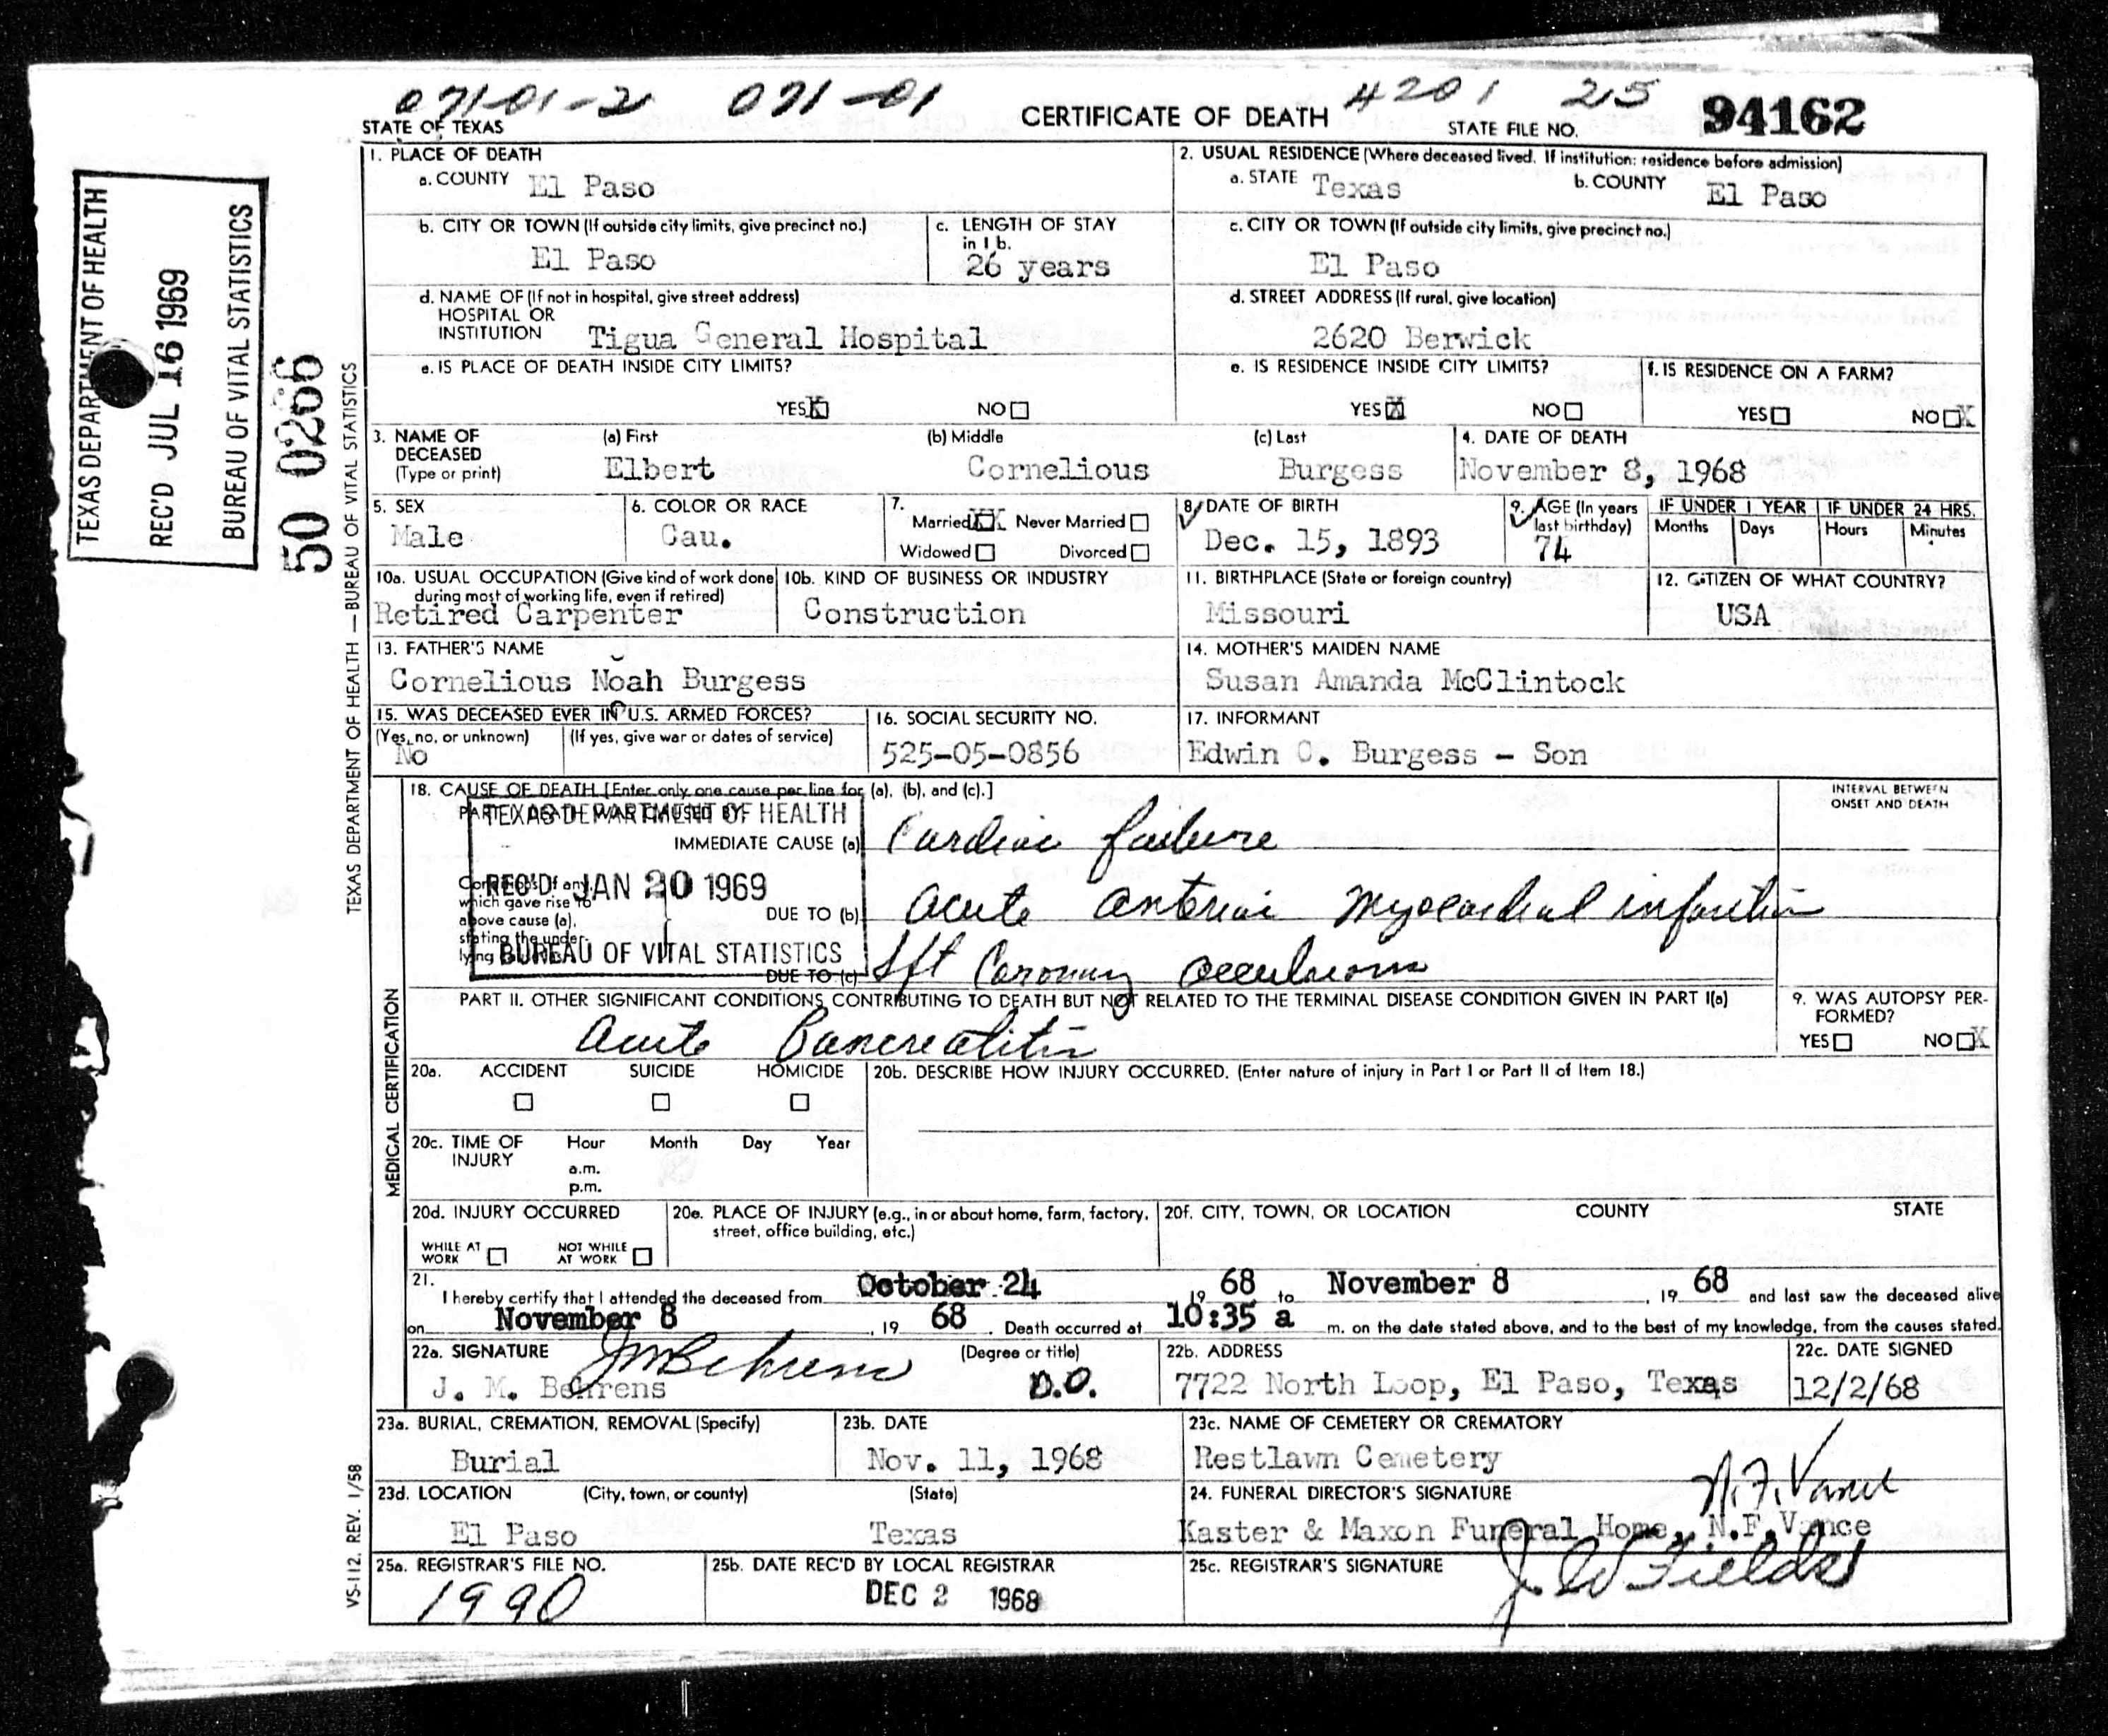 07101-2 071-01 4201 215
STATE OF TEXAS CERTIFICATE OF DEATH STATE FILE NO. 94162
TEXAS DEPARTMENT OF HEALTH
REC'D JUL 16 1969
BUREAU OF VITAL STATISTICS
50 0266
TEXAS DEPARTMENT OF HEALTH — BUREAU OF VITAL STATISTICS
1. PLACE OF DEATH
a. COUNTY El Paso
2. USUAL RESIDENCE (Where deceased lived. If institution: residence before admission)
a. STATE Texas b. COUNTY El Paso
b. CITY OR TOWN (If outside city limits, give precinct no.)
El Paso
c. LENGTH OF STAY
in 1 b.
26 years
c. CITY OR TOWN (If outside city limits, give precinct no.)
El Paso
d. NAME OF (If not in hospital, give street address)
HOSPITAL OR
INSTITUTION Tigua General Hospital
d. STREET ADDRESS (If rural, give location)
2620 Berwick
e. IS PLACE OF DEATH INSIDE CITY LIMITS?
YES X NO
e. IS RESIDENCE INSIDE CITY LIMITS?
YES X NO
f. IS RESIDENCE ON A FARM?
YES NO X
3. NAME OF DECEASED (Type or print)
(a) First (b) Middle (c) Last
Elbert Cornelious Burgess
4. DATE OF DEATH
November 8, 1968
5. SEX
Male
6. COLOR OR RACE
Cau.
7.
Married XX Never Married
Widowed Divorced
8. DATE OF BIRTH
Dec. 15, 1893
9. AGE (In years last birthday)
74
IF UNDER 1 YEAR IF UNDER 24 HRS.
Months Days Hours Minutes
10a. USUAL OCCUPATION (Give kind of work done during most of working life, even if retired)
Retired Carpenter
10b. KIND OF BUSINESS OR INDUSTRY
Construction
11. BIRTHPLACE (State or foreign country)
Missouri
12. CITIZEN OF WHAT COUNTRY?
USA
13. FATHER'S NAME
Cornelious Noah Burgess
14. MOTHER'S MAIDEN NAME
Susan Amanda McClintock
15. WAS DECEASED EVER IN U.S. ARMED FORCES?
(Yes, no, or unknown) (If yes, give war or dates of service)
No
16. SOCIAL SECURITY NO.
525-05-0856
17. INFORMANT
Edwin C. Burgess - Son
MEDICAL CERTIFICATION
18. CAUSE OF DEATH [Enter only one cause per line for (a), (b), and (c).]
INTERVAL BETWEEN
ONSET AND DEATH
PART I. DEATH WAS CAUSED BY:
TEXAS DEPARTMENT OF HEALTH
IMMEDIATE CAUSE (a) Cardiac failure
REC'D JAN 20 1969
Conditions, if any,
which gave rise to
above cause (a),
stating the under-
lying
DUE TO (b) Acute anterior myocardial infarction
BUREAU OF VITAL STATISTICS
DUE TO (c) Lft Coronary occulsion
PART II. OTHER SIGNIFICANT CONDITIONS CONTRIBUTING TO DEATH BUT NOT RELATED TO THE TERMINAL DISEASE CONDITION GIVEN IN PART I(a)
Acute Pancreatitis
9. WAS AUTOPSY PER-
FORMED?
YES NO X
20a. ACCIDENT SUICIDE HOMICIDE
20b. DESCRIBE HOW INJURY OCCURRED. (Enter nature of injury in Part I or Part II of Item 18.)
20c. TIME OF INJURY Hour Month Day Year
a.m.
p.m.
20d. INJURY OCCURRED
WHILE AT WORK NOT WHILE AT WORK
20e. PLACE OF INJURY (e.g., in or about home, farm, factory, street, office building, etc.)
20f. CITY, TOWN, OR LOCATION COUNTY STATE
21.
I hereby certify that I attended the deceased from October 24 19 68 to November 8, 19 68 and last saw the deceased alive
on November 8, 19 68. Death occurred at 10:35 a m. on the date stated above, and to the best of my knowledge, from the causes stated.
22a. SIGNATURE JM Behrens (Degree or title)
J. M. Behrens D.O.
22b. ADDRESS
7722 North Loop, El Paso, Texas
22c. DATE SIGNED
12/2/68
23a. BURIAL, CREMATION, REMOVAL (Specify)
Burial
23b. DATE
Nov. 11, 1968
23c. NAME OF CEMETERY OR CREMATORY
Restlawn Cemetery
23d. LOCATION (City, town, or county) (State)
El Paso Texas
24. FUNERAL DIRECTOR'S SIGNATURE N. F. Vance
Kaster & Maxon Funeral Home, N.F. Vance
25a. REGISTRAR'S FILE NO.
1990
25b. DATE REC'D BY LOCAL REGISTRAR
DEC 2 1968
25c. REGISTRAR'S SIGNATURE J. W Fields
VS-112. REV. 1/58